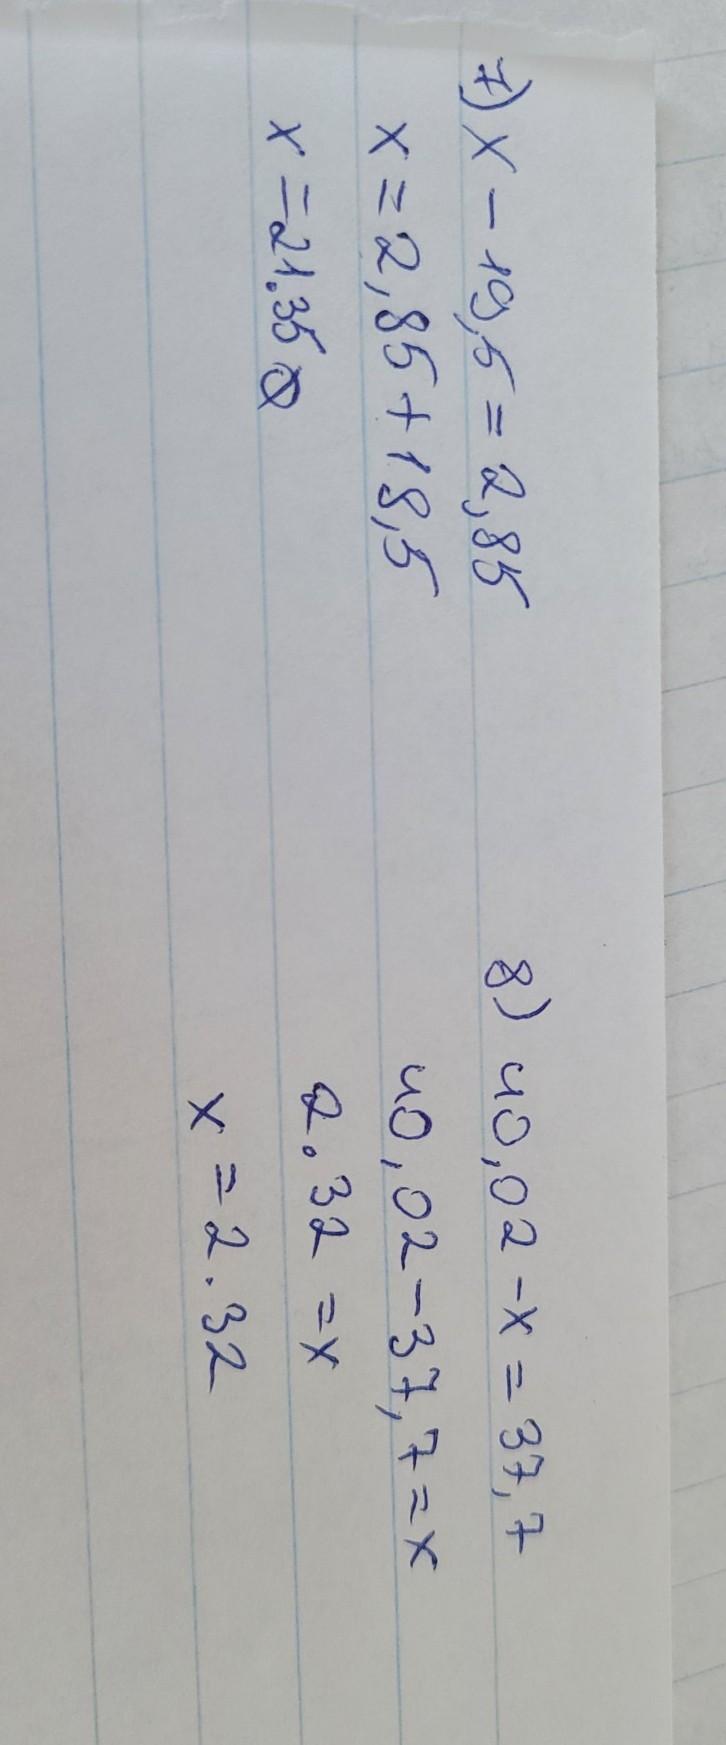 7) x - 19,5 = 2,85
x = 2,85 + 18,5
x = 21.35
8) 40,02 - x = 37,7
40,02 - 37,7 = x
2.32 = x
x = 2.32